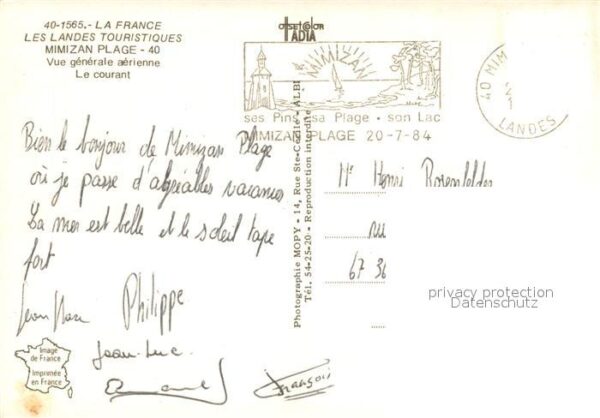 40-1565.- LA FRANCE
LES LANDES TOURISTIQUES
MIMIZAN PLAGE - 40
Vue générale aérienne
Le courant
OFFSET COLOR
IADIA
MIMIZAN
ses Pins, sa Plage - son Lac
MIMIZAN PLAGE 20-7-84
40 MIM
LANDES
Bien le bonjour de Mimizan Plage
où je passe d'agréables vacances
La mer est belle et le soleil tape
fort
Jean Marc
Philippe
Jean-Luc
François
Image
de France
Imprimée
en France
Photographie MOPY - 14, Rue Ste-Cécile - ALBI
Tél. 54-25-20 - Reproduction interdite
Mr Henri
67 36
privacy protection
Datenschutz